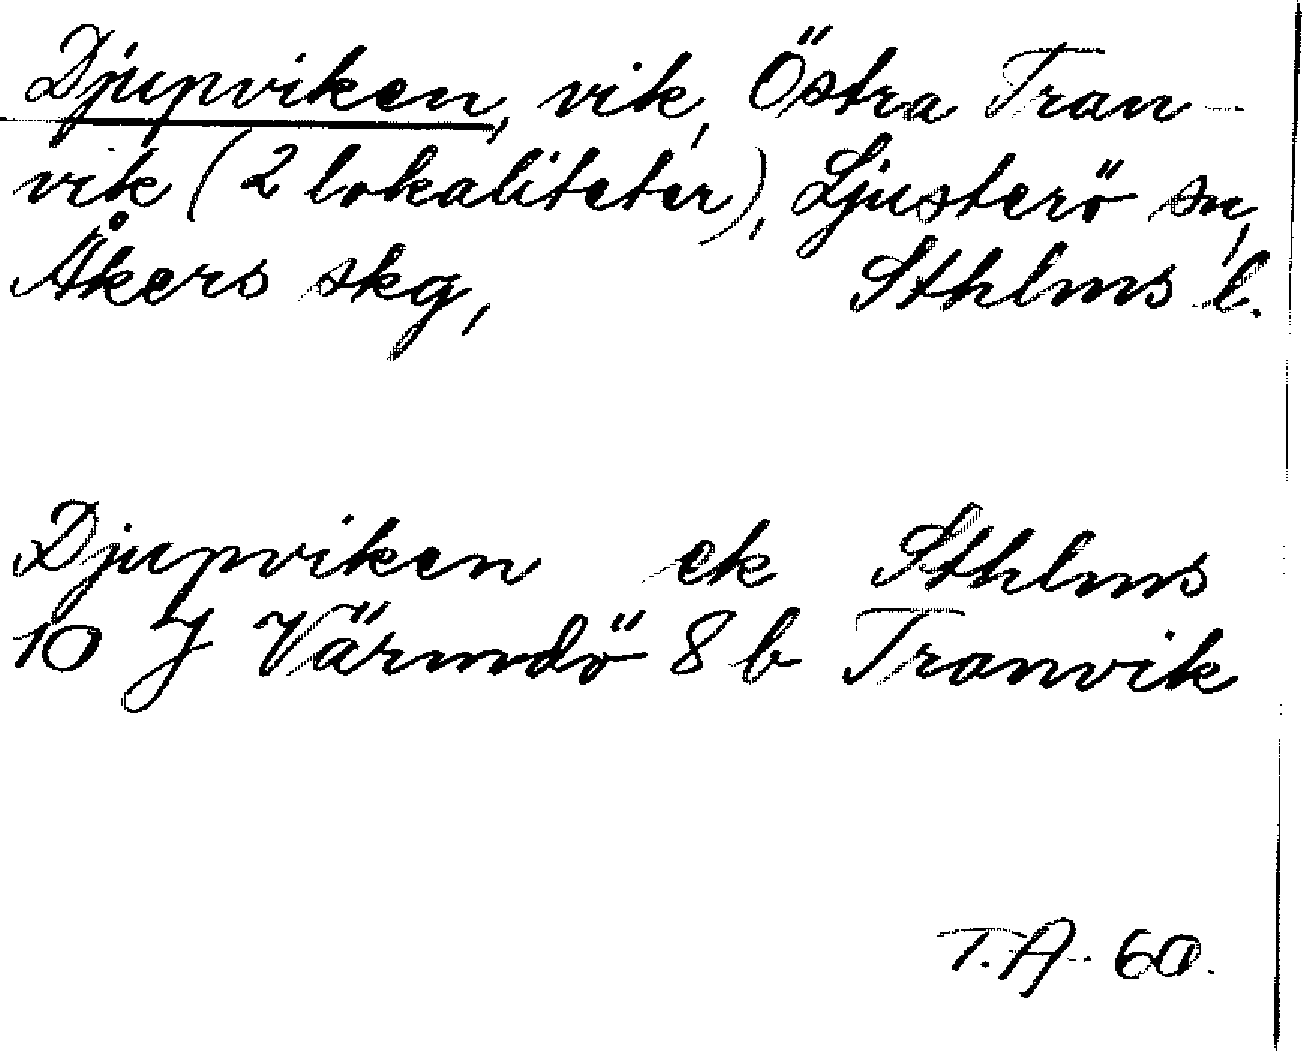 Djupviken, vik, Östra Tran-
vik (2 lokaliteter), Ljusterö sn,
Åkers skg, Sthlms l.
Djupviken ek Sthlms
10 J Värmdö 8 b Tranvik
T.A. 60.